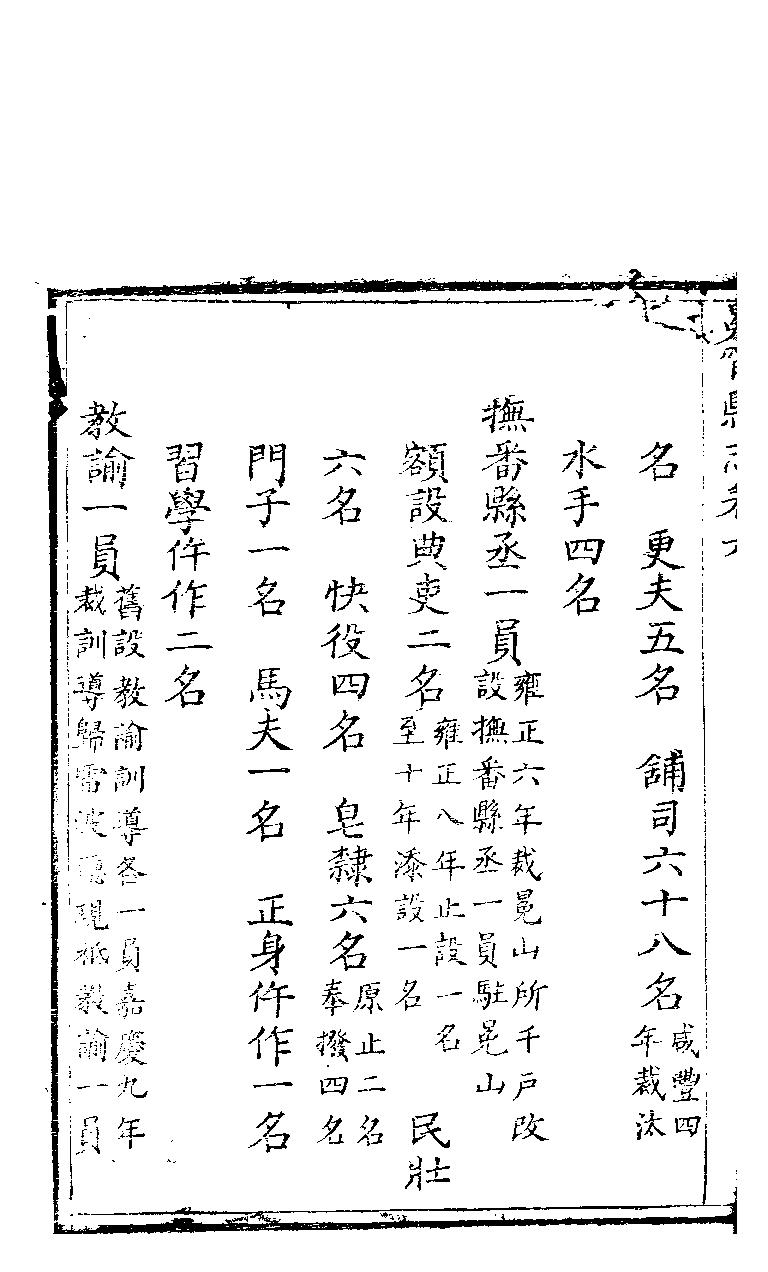 縣志卷六
名　更夫五名　舖司六十八名咸豐四
年裁汰
水手四名
撫番縣丞一員雍正六年裁冕山所千戸改
設撫番縣丞一員駐冕山
額設典吏二名雍正八年止設一名
至十年添設一名　民壯
六名　快役四名　皂隸六名原止二名
奉撥四名
門子一名　馬夫一名　正身仵作一名
習學仵作二名
教諭一員舊設教諭訓導各一員嘉慶九年
裁訓導歸雷波廳現祗教諭一員